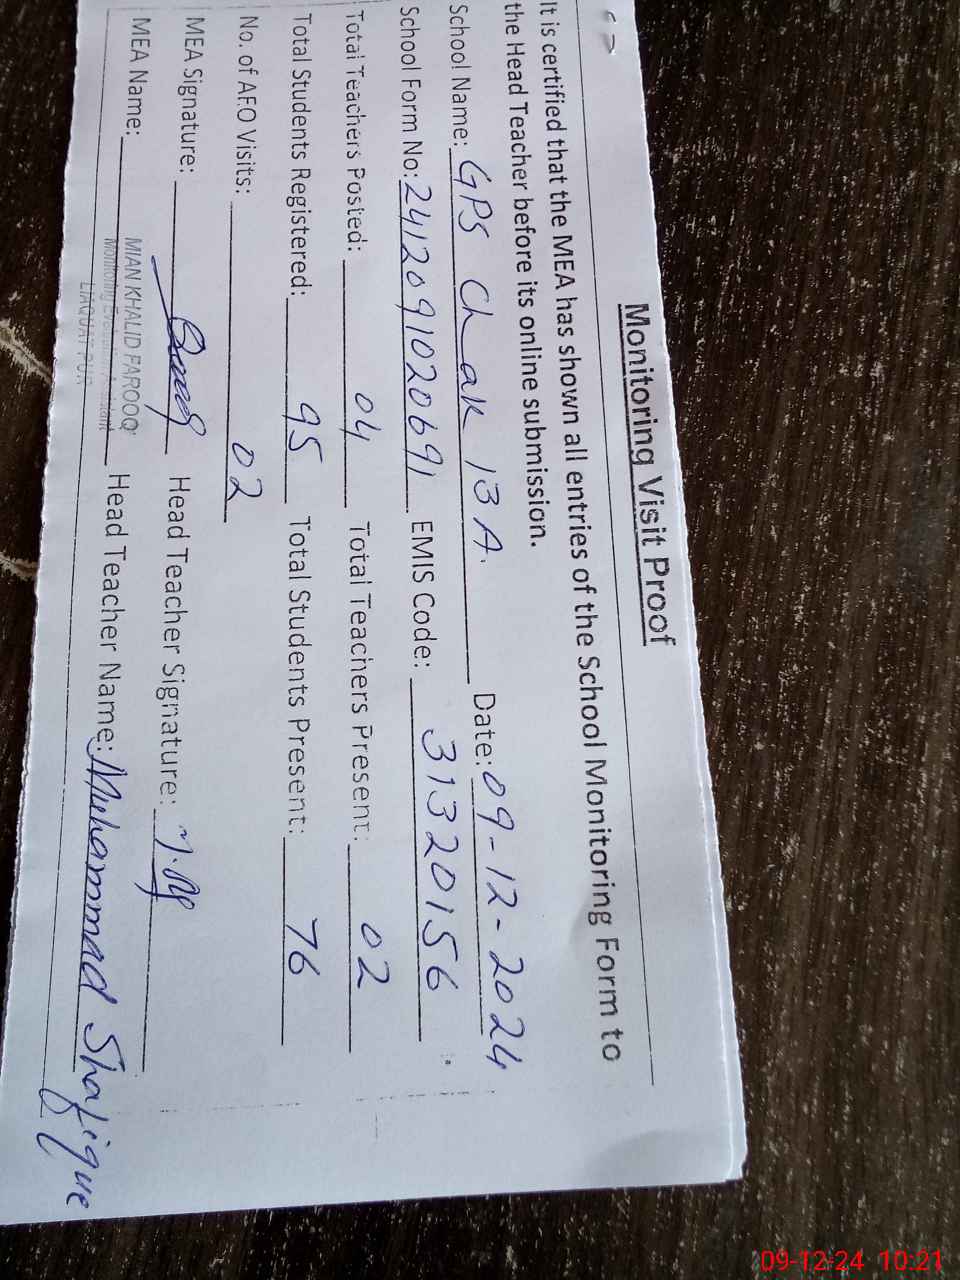 Monitoring Visit Proof
It is certified that the MEA has shown all entries of the School Monitoring Form to
the Head Teacher before its online submission.
School Name: GPS Chak 13 A. Date: 09-12-2024
School Form No: 2412091020691 EMIS Code: 31320156
Total Teachers Posted: 04 Total Teachers Present: 02
Total Students Registered: 95 Total Students Present: 76
No. of AEO Visits: 02
MEA Signature: Head Teacher Signature:
MEA Name: MIAN KHALID FAROOQ Head Teacher Name: Muhammad Shafique
Monitoring Evaluation Assistant
LIAQUAT PUR
09-12-24 10:21